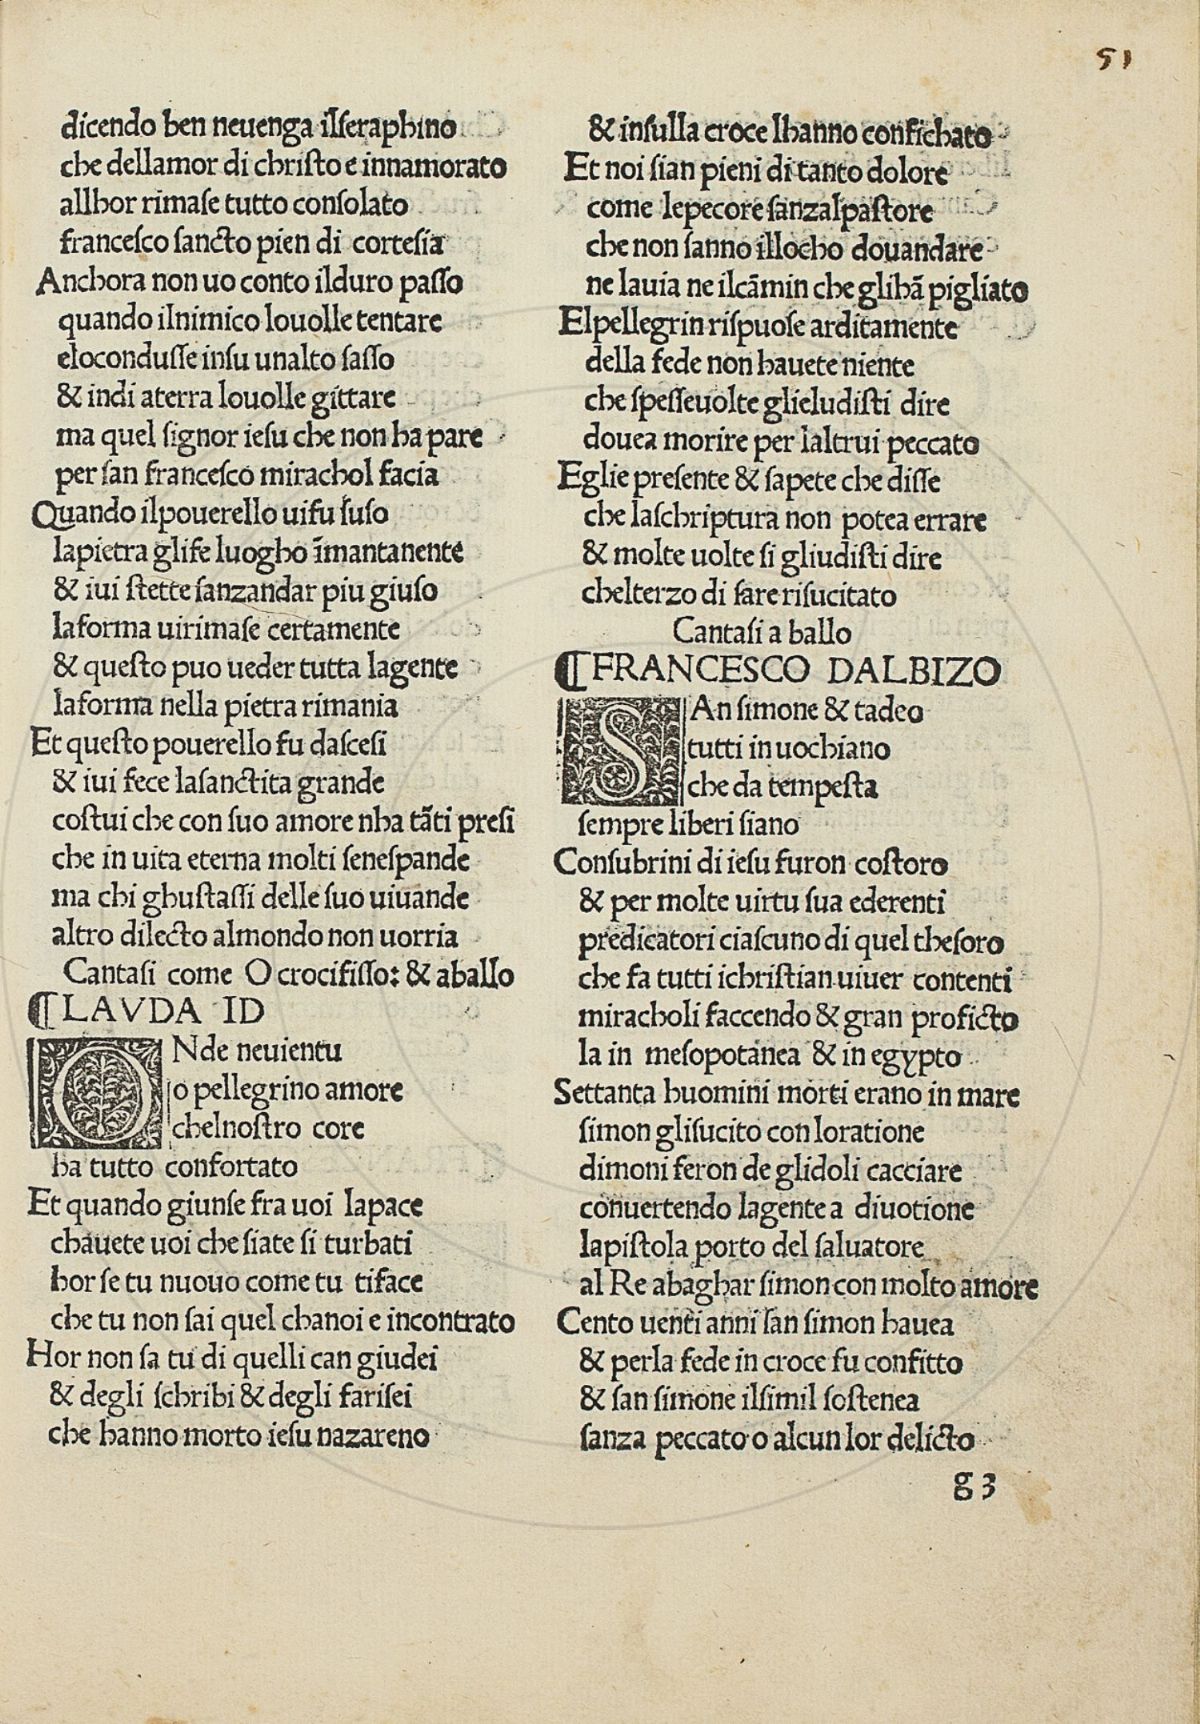 51
dicendo ben neuenga ilſeraphino
che dellamor di chriſto e innamorato
allhor rimaſe tutto conſolato
franceſco ſancto pien di corteſia
Anchora non uo conto ilduro paſſo
quando ilnimico louolle tentare
eloconduſſe inſu unalto ſaſſo
& indi aterra louolle gittare
ma quel ſignor ieſu che non ha pare
per ſan franceſco mirachol facia
Quando ilpouerello uifu ſuſo
lapietra glife luogho īmantanente
& iui ſtette ſanzandar piu giuſo
laforma uirimaſe certamente
& queſto puo ueder tutta lagente
laforma nella pietra rimania
Et queſto pouerello fu daſceſi
& iui fece laſanctita grande
coſtui che con ſuo amore nha tāti preſi
che in uita eterna molti ſeneſpande
ma chi ghuſtaſſi delle ſuo uiuande
altro dilecto almondo non uorria
Cantaſi come O crocifiſſo: & aballo
¶LAVDA ID
ONde neuientu
o pellegrino amore
chelnoſtro core
ha tutto confortato
Et quando giunſe fra uoi lapace
chauete uoi che ſiate ſi turbati
hor ſe tu nuouo come tu tiface
che tu non ſai quel chanoi e incontrato
Hor non ſa tu di quelli can giudei
& degli ſchribi & degli fariſei
che hanno morto ieſu nazareno
& inſulla croce lhanno confichato
Et noi ſian pieni di tanto dolore
come lepecore ſanzalpaſtore
che non ſanno illocho douandare
ne lauia ne ilcāmin che glihā pigliato
Elpellegrin riſpuoſe arditamente
della fede non hauete niente
che ſpeſſeuolte glieludiſti dire
douea morire per laltrui peccato
Eglie preſente & ſapete che diſſe
che laſchriptura non potea errare
& molte uolte ſi gliudiſti dire
chelterzo di ſare riſucitato
Cantaſi a ballo
¶FRANCESCO DALBIZO
SAn ſimone & tadeo
tutti in uochiano
che da tempeſta
ſempre liberi ſiano
Conſubrini di ieſu furon coſtoro
& per molte uirtu ſua ederenti
predicatori ciaſcuno di quel theſoro
che fa tutti ichriſtian uiuer contenti
miracholi faccendo & gran proficto
la in meſopotanea & in egypto
Settanta huomini morti erano in mare
ſimon gliſucito con loratione
dimoni feron de glidoli cacciare
conuertendo lagente a diuotione
lapiſtola porto del ſaluatore
al Re abaghar ſimon con molto amore
Cento uenti anni ſan ſimon hauea
& perla fede in croce fu confitto
& ſan ſimone ilſimil ſoſtenea
ſanza peccato o alcun lor delicto
g 3